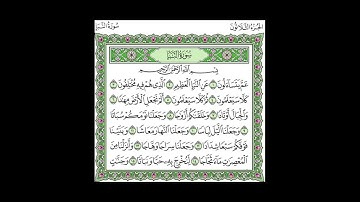 سورة النبأ الجزء الثلاثون
سورة النبأ
بسم الله الرحمن الرحيم
عم يتساءلون ١ عن النبإ العظيم ٢ الذي هم فيه مختلفون ٣
كلا سيعلمون ٤ ثم كلا سيعلمون ٥ ألم نجعل الأرض مهادا ٦
والجبال أوتادا ٧ وخلقناكم أزواجا ٨ وجعلنا نومكم سباتا
٩ وجعلنا الليل لباسا ١٠ وجعلنا النهار معاشا ١١ وبنينا
فوقكم سبعا شدادا ١٢ وجعلنا سراجا وهاجا ١٣ وأنزلنا من
المعصرات ماء ثجاجا ١٤ لنخرج به حبا ونباتا ١٥ وجنات